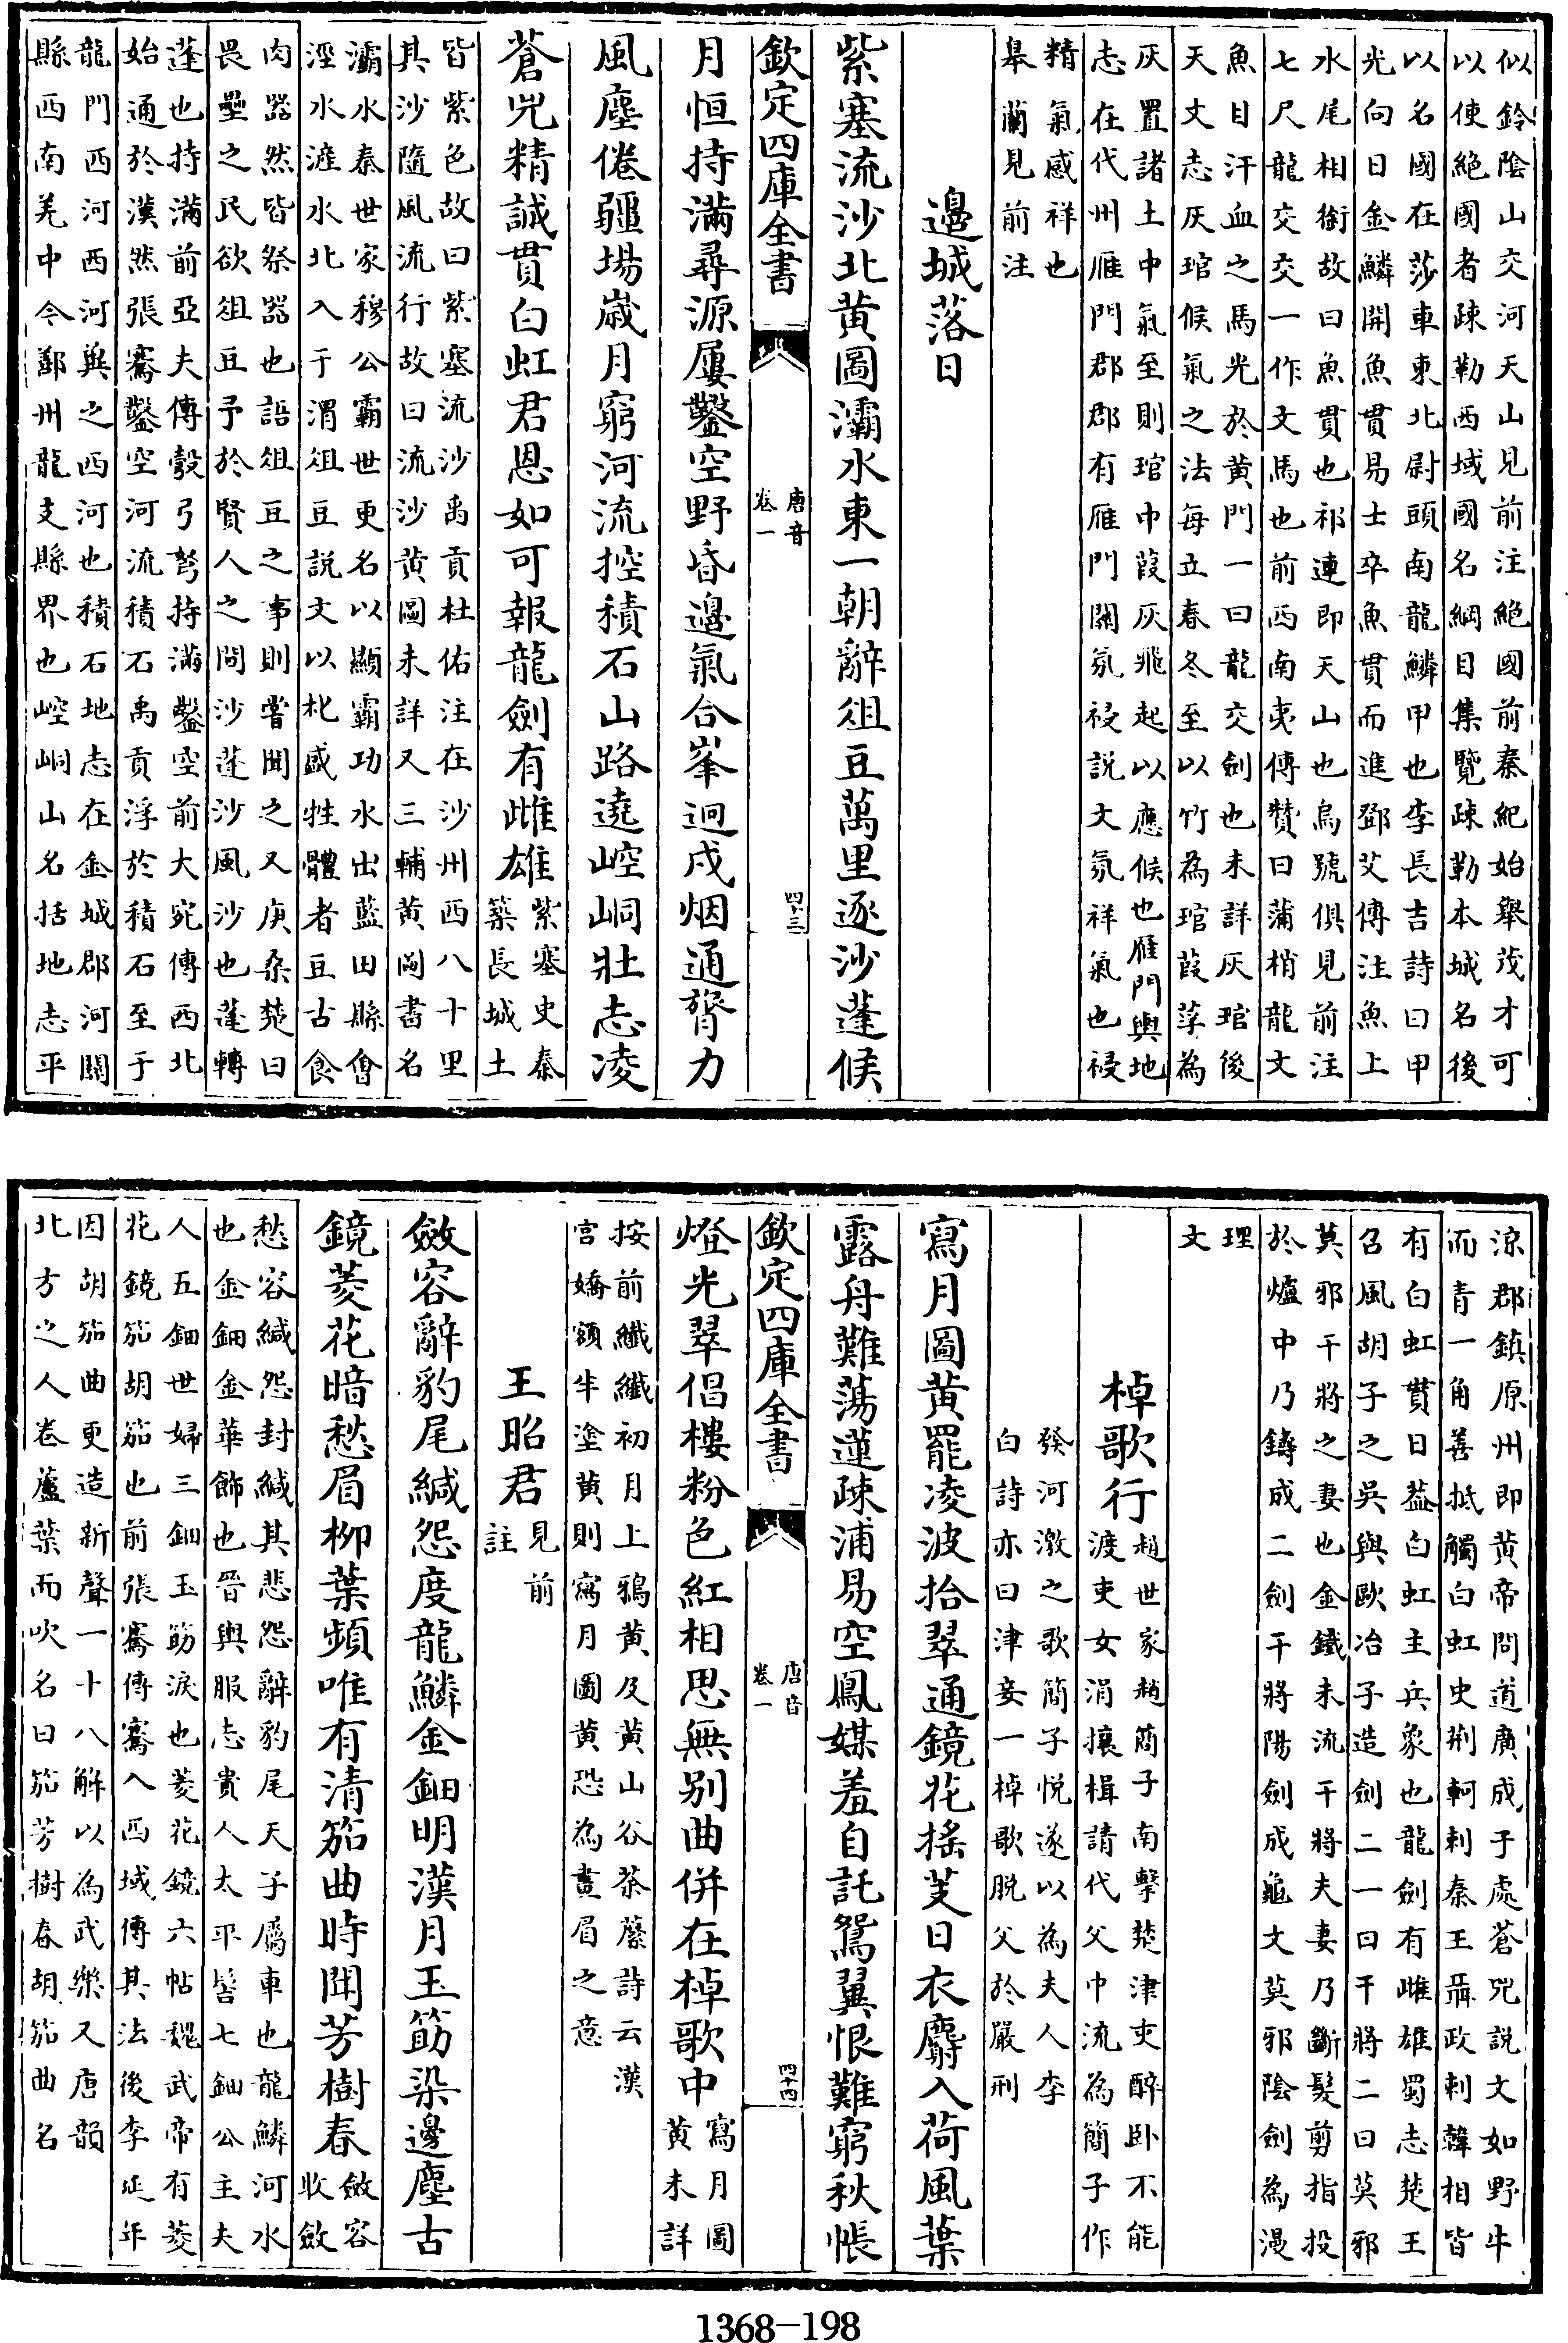 似鈴陰山交河天山見前注絕國前秦紀始舉茂才可
以使絕國者疎勒西域國名綱目集覽疎勒本城名後
以名國在莎車東北尉頭南龍鱗甲也李長吉詩曰甲
光向日金鱗開魚貫易士卒魚貫而進鄧艾傳注魚上
水尾相銜故曰魚貫也祁連即天山也烏號俱見前注
七尺龍交交一作文馬也前西南夷傳贊曰蒲梢龍文
魚目汗血之馬光於黄門一曰龍交劍也未詳灰琯後
天文志灰琯候氣之法每立春冬至以竹為琯葭莩為
灰置諸土中氣至則琯中葭灰飛起以應候也雁門輿地
志在代州雁門郡郡有雁門關氛祲説文氛祥氣也祲
精氣感祥也
臯蘭見前注
邊城落日
紫塞流沙北黄圖灞水東一朝辭俎豆萬里逐沙蓬候
欽定四庫全書
唐音
卷一
四十三
月恒持滿尋源屢鑿空野昏邊氣合峯迥戍烟通膂力
風塵倦疆場歲月窮河流控積石山路遶崆峒壯志凌
蒼兕精誠貫白虹君恩如可報龍劍有雌雄
紫塞史秦
築長城土
皆紫色故曰紫塞流沙禹貢杜佑注在沙州西八十里
其沙隨風流行故曰流沙黄圖未詳又三輔黄圖書名
灞水秦世家穆公霸世更名以顯霸功水出藍田縣會
涇水滻水北入于渭俎豆説文以朼盛牲體者豆古食
肉器然皆祭器也語俎豆之事則嘗聞之又庚桑楚曰
畏壘之民欲俎豆予於賢人之間沙蓬沙風沙也蓬轉
蓬也持滿前亞夫傳彀弓弩持滿鑿空前大宛傳西北
始通於漢然張騫鑿空河流積石禹貢浮於積石至于
龍門西河西河與之西河也積石地志在金城郡河關
縣西南羌中今鄯州龍支縣界也崆峒山名括地志平
涼郡鎮原州即黄帝問道廣成于處蒼兕説文如野牛
而青一角善抵觸白虹史荆軻刺秦王聶政刺韓相皆
有白虹貫日葢白虹主兵象也龍劍有雌雄蜀志楚王
召風胡子之吳與歐冶子造劍二一曰干將二曰莫邪
莫邪干將之妻也金鐵未流干將夫妻乃斷髮剪指投
於爐中乃鑄成二劍干將陽劍成龜文莫邪陰劍為漫
理
文
棹歌行
趙世家趙簡子南擊楚津吏醉卧不能
渡吏女涓攘楫請代父中流為簡子作
發河激之歌簡子悦遂以為夫人李
白詩亦曰津妾一棹歌脱父於嚴刑
寫月圖黄罷凌波拾翠通鏡花揺芰日衣麝入荷風葉
露舟難蕩蓮疎浦易空鳳媒羞自託鴛翼恨難窮秋帳
欽定四庫全書
唐音
卷一
四十四
燈光翠倡樓粉色紅相思無别曲併在棹歌中
寫月圖
黄未詳
按前纖纖初月上鴉黄及黄山谷茶䕷詩云漢
宫嬌額半塗黄則寫月圖黄恐為畫眉之意
王昭君
見前
註
斂容辭豹尾緘怨度龍鱗金鈿明漢月玉筯染邊塵古
鏡菱花暗愁眉柳葉頻唯有清笳曲時聞芳樹春
斂容
收斂
愁容緘怨封緘其悲怨辭豹尾天子屬車也龍鱗河水
也金鈿金華飾也晉輿服志貴人太平髻七鈿公主夫
人五鈿世婦三鈿玉筯淚也菱花鏡六帖魏武帝有菱
花鏡笳胡笳也前張騫傳騫入西域傳其法後李延年
因胡笳曲更造新聲一十八解以為武樂又唐韻
北方之人卷蘆葉而吹名曰笳芳樹春胡笳曲名
1368-198